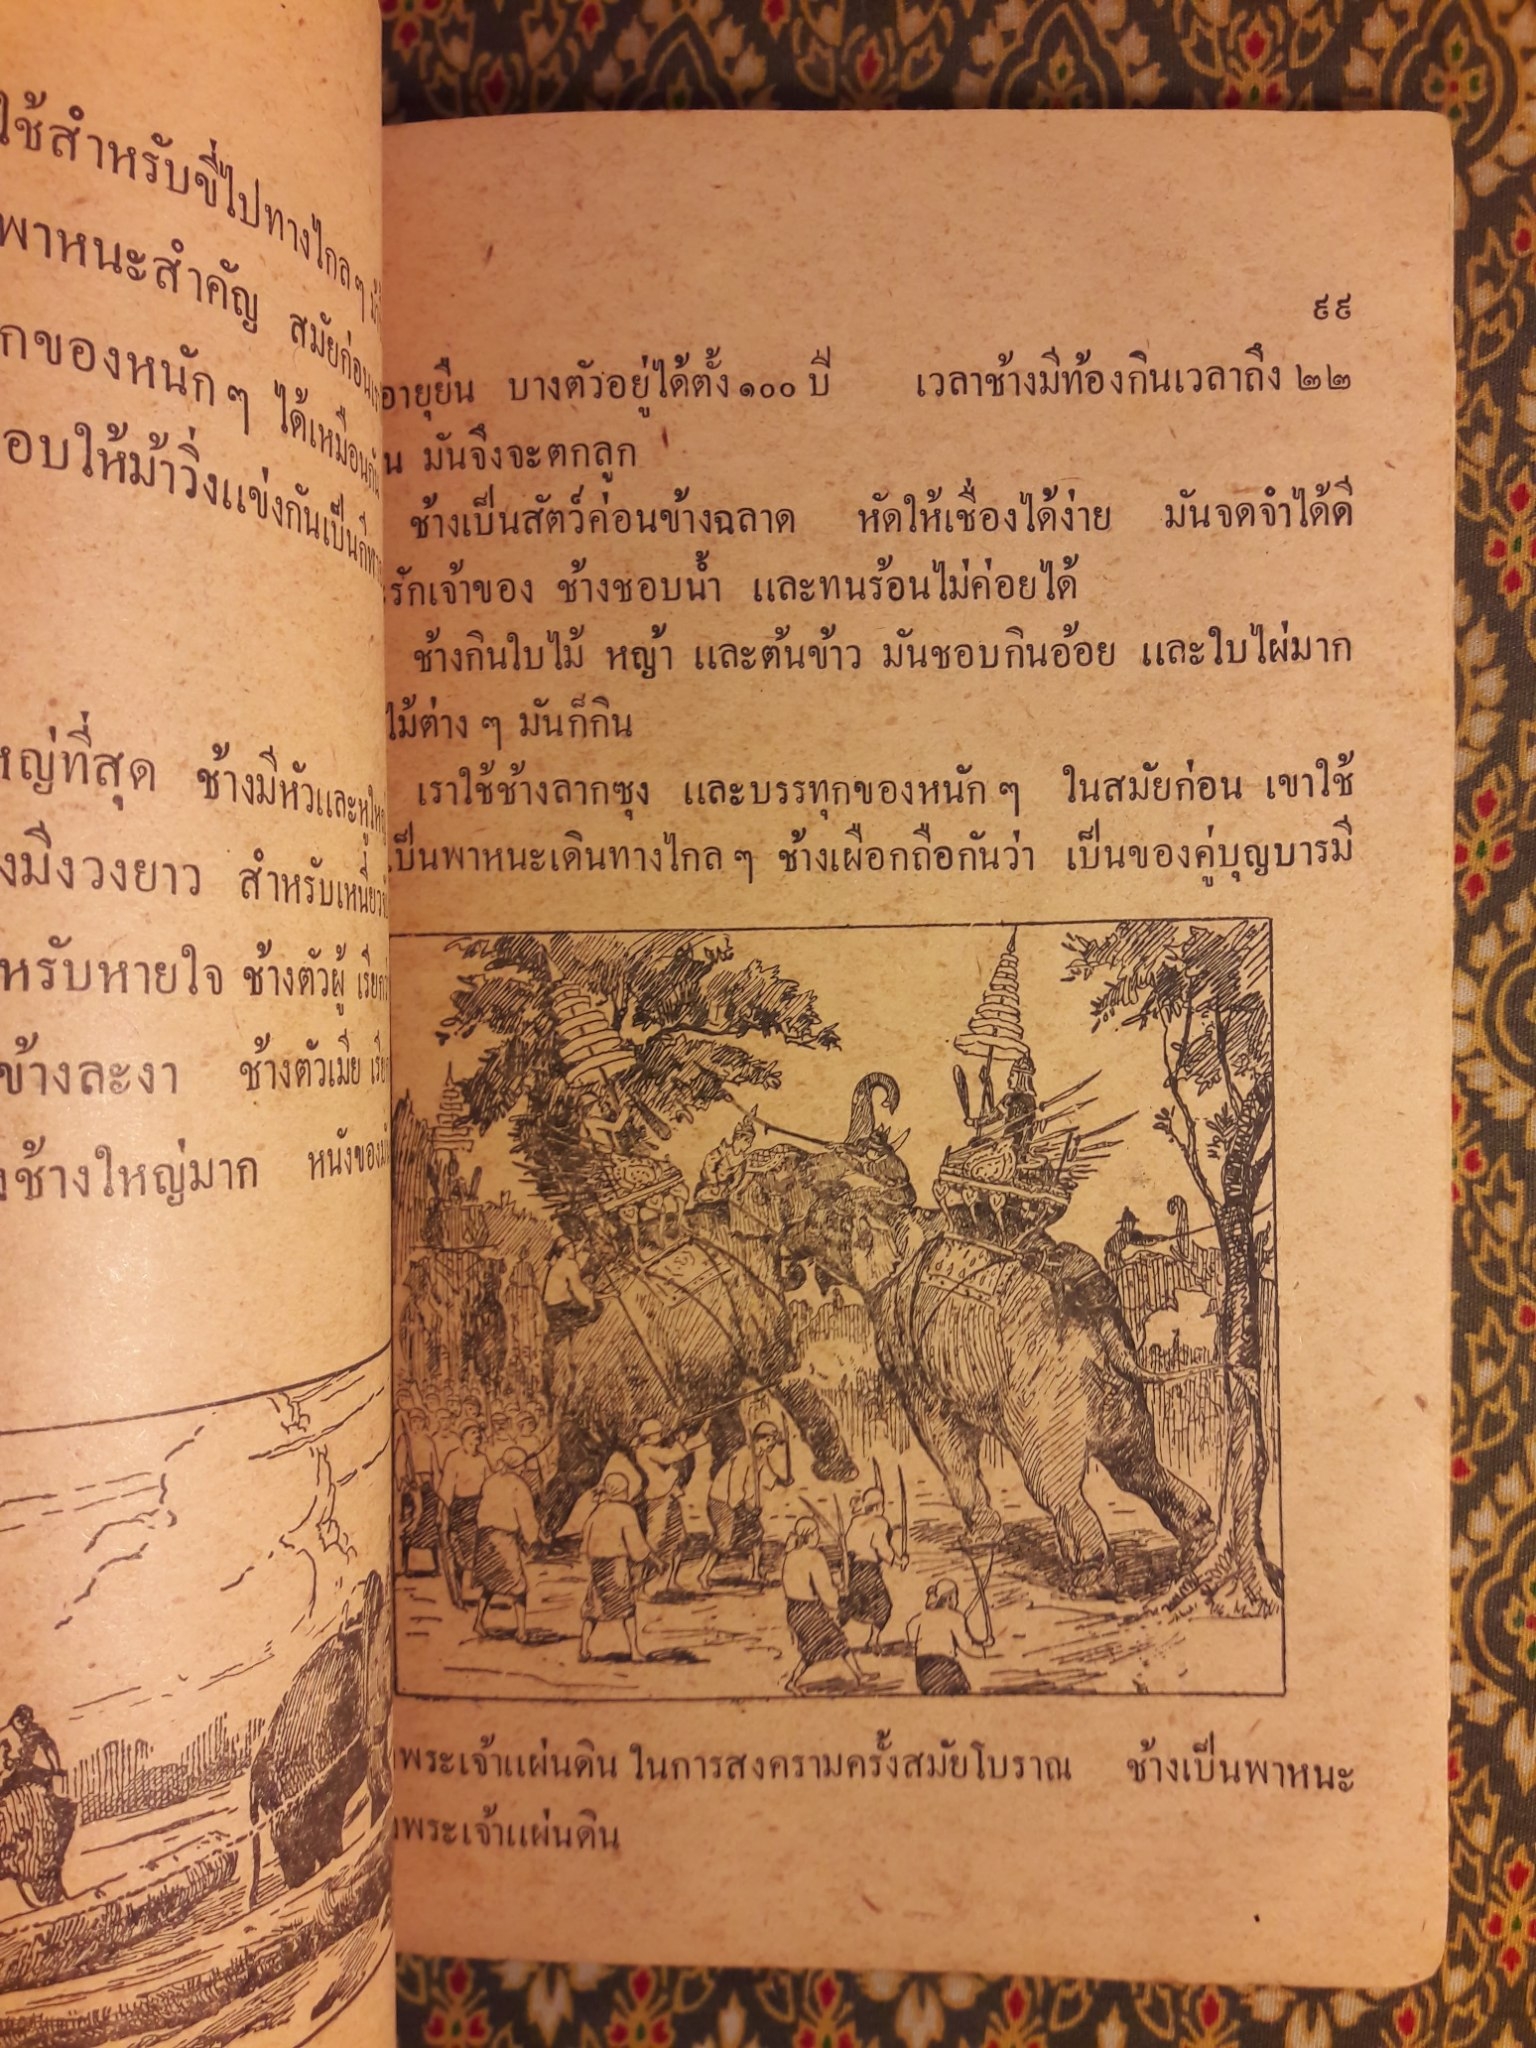 ใช้สำหรับขี่ไปทางไกล ๆ
พาหนะสำคัญ สมัยก่อน
ของหนัก ๆ ได้เหมือนกัน
ชอบให้ม้าวิ่งแข่งกันเป็นกีฬา
ใหญ่ที่สุด ช้างมีหัวและหูใหญ่
มีงวงยาว สำหรับเหนี่ยว
สำหรับหายใจ ช้างตัวผู้ เรียก
ข้างละงา ช้างตัวเมีย
ช้างใหญ่มาก หนังของมัน
๙๙
อายุยืน บางตัวอยู่ได้ตั้ง ๑๐๐ ปี เวลาช้างมีท้องกินเวลาถึง ๒๒
น มันจึงจะตกลูก
ช้างเป็นสัตว์ค่อนข้างฉลาด หัดให้เชื่องได้ง่าย มันจดจำได้ดี
รักเจ้าของ ช้างชอบน้ำ และทนร้อนไม่ค่อยได้
ช้างกินใบไม้ หญ้า และต้นข้าว มันชอบกินอ้อย และใบไผ่มาก
ไม้ต่าง ๆ มันก็กิน
เราใช้ช้างลากซุง และบรรทุกของหนัก ๆ ในสมัยก่อน เขาใช้
เป็นพาหนะเดินทางไกล ๆ ช้างเผือกถือกันว่า เป็นของคู่บุญบารมี
พระเจ้าแผ่นดิน ในการสงครามครั้งสมัยโบราณ ช้างเป็นพาหนะ
พระเจ้าแผ่นดิน